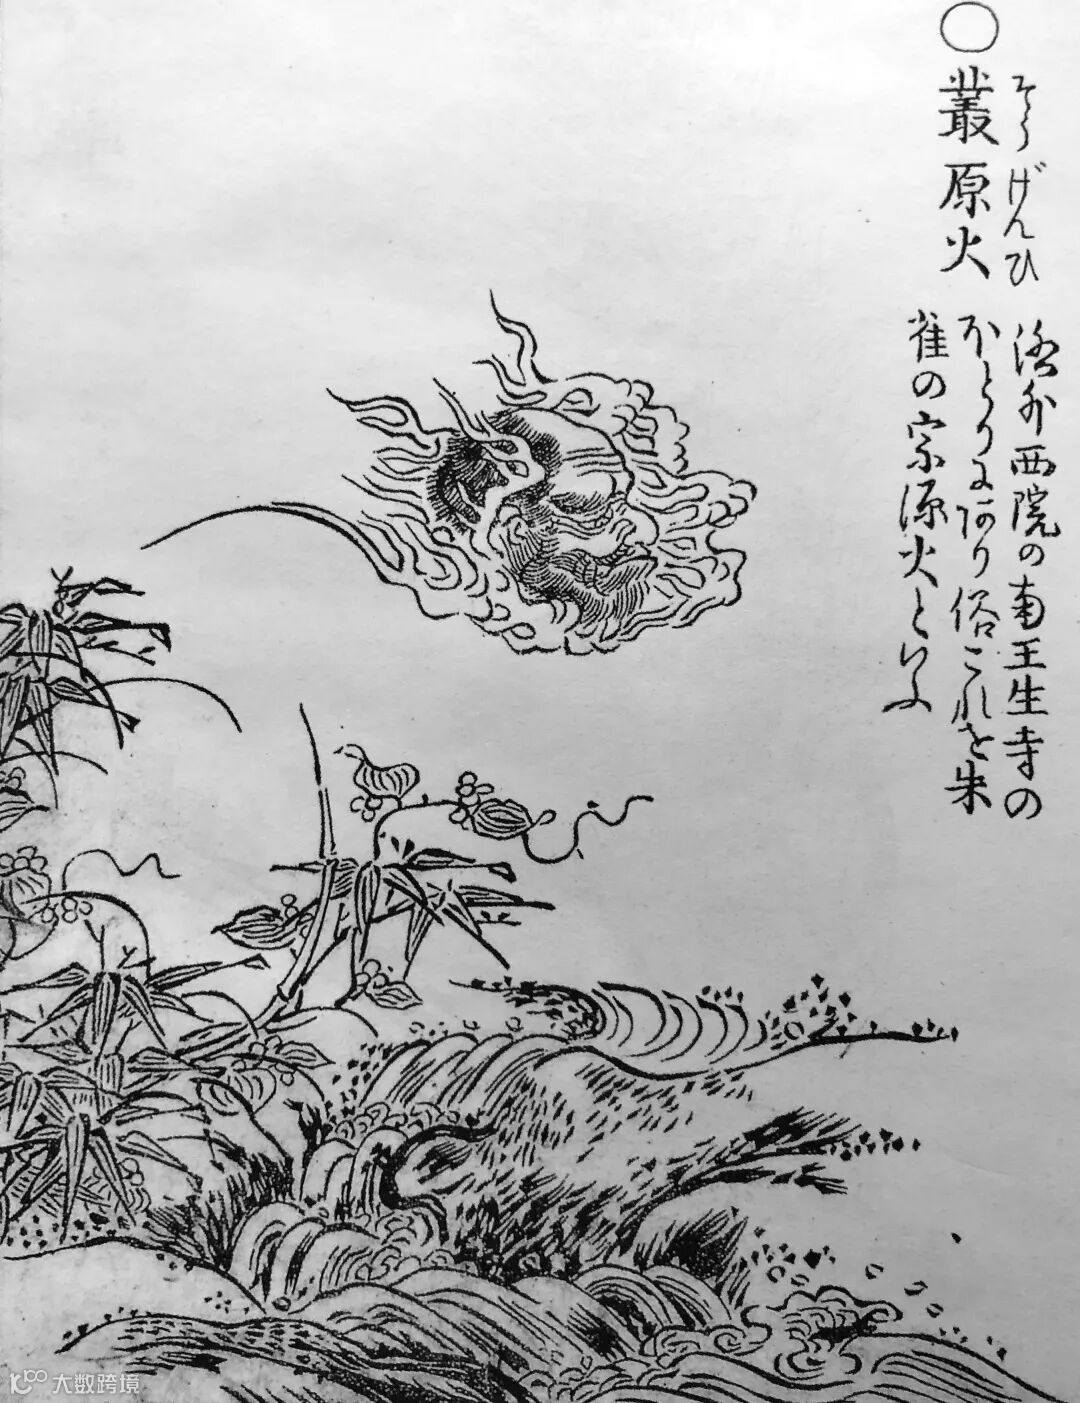 ○叢原火
そうげんひ
洛外西院の南壬生寺の
ほとりにあり俗これを朱
雀の宗源火といふ
大数跨境